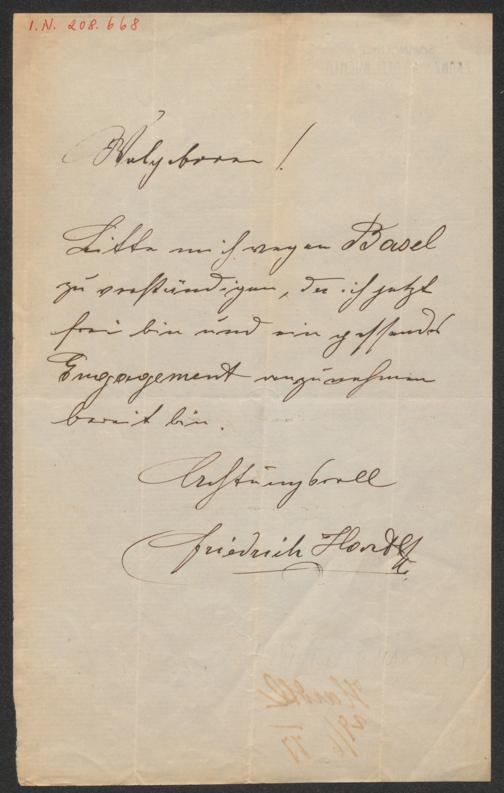 I.N. 208.668
Wolgeboren!
Bitte mich wegen Basel
zu verständigen, da ich jetzt
frei bin und ein passendes
Engagement anzunehmen
bereit bin.
Achtungsvoll
Friedrich